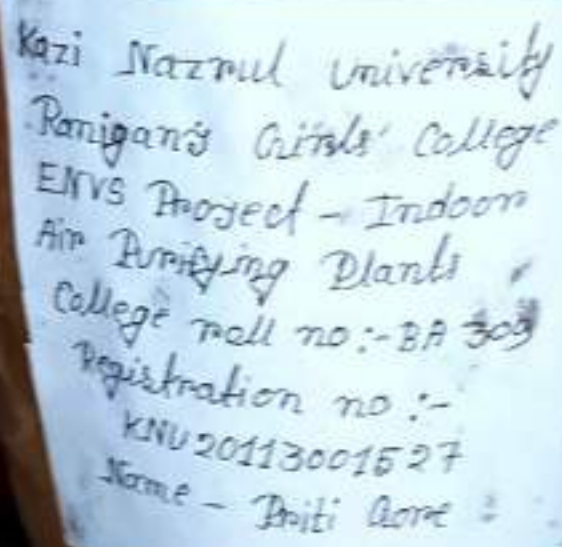 Kazi Nazrul University
Raniganj Girls' College
ENVS Project - Indoor
Air Purifying Plants
College roll no:- BA 303
Registration no :-
KNU20113001527
Name - Priti Gope